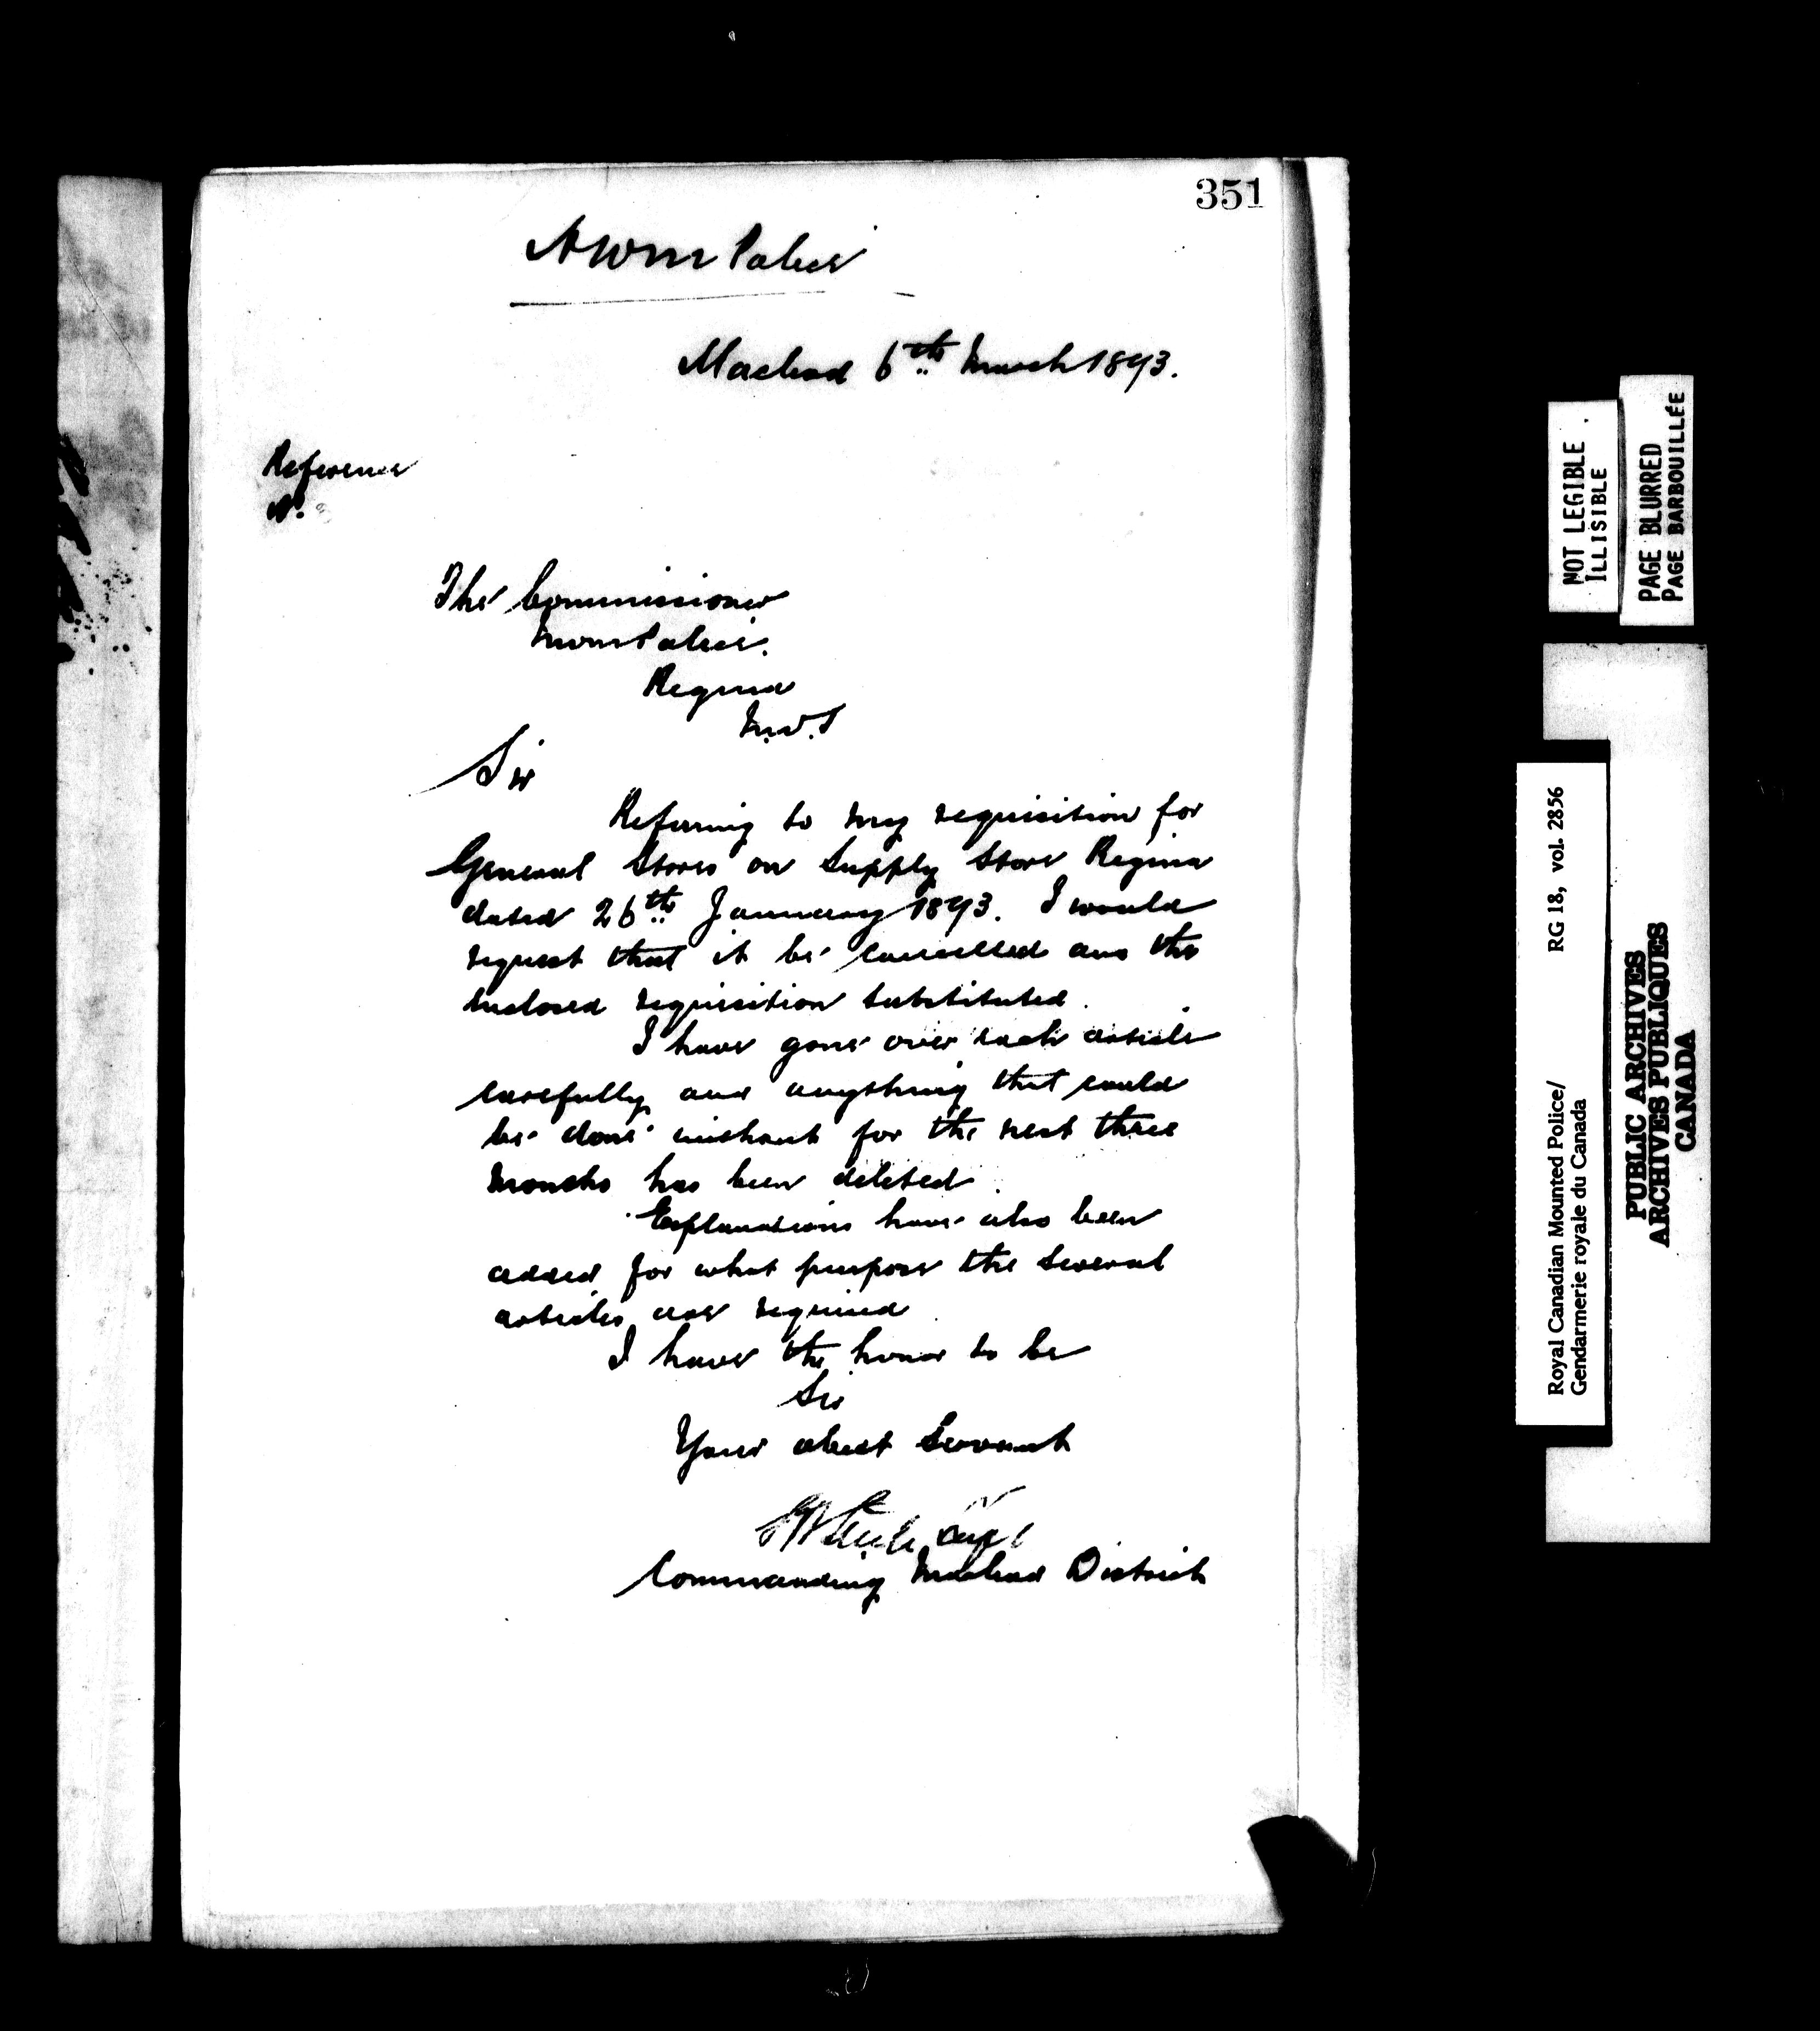 351
NWM Police
Macleod 6th March 1893.
Reference
No.
The Commissioner
NWM Police.
Regina
N.W.T
Sir
Referring to my requisition for
General Stores on Supply Store Regina
dated 26th January 1893. I would
request that it be cancelled and the
enclosed requisition substituted.
I have gone over each article
carefully and anything that could
be done without for the next three
months has been deleted.
Explanations have also been
added for what purpose the several
articles are required
I have the honor to be
Sir
Your obedt Servant
SB Steele Supt
Commanding Macleod District
NOT LEGIBLE
ILLISIBLE
PAGE BLURRED
PAGE BARBOUILLÉE
Royal Canadian Mounted Police/ RG 18, vol. 2856
Gendarmerie royale du Canada
PUBLIC ARCHIVES
ARCHIVES PUBLIQUES
CANADA